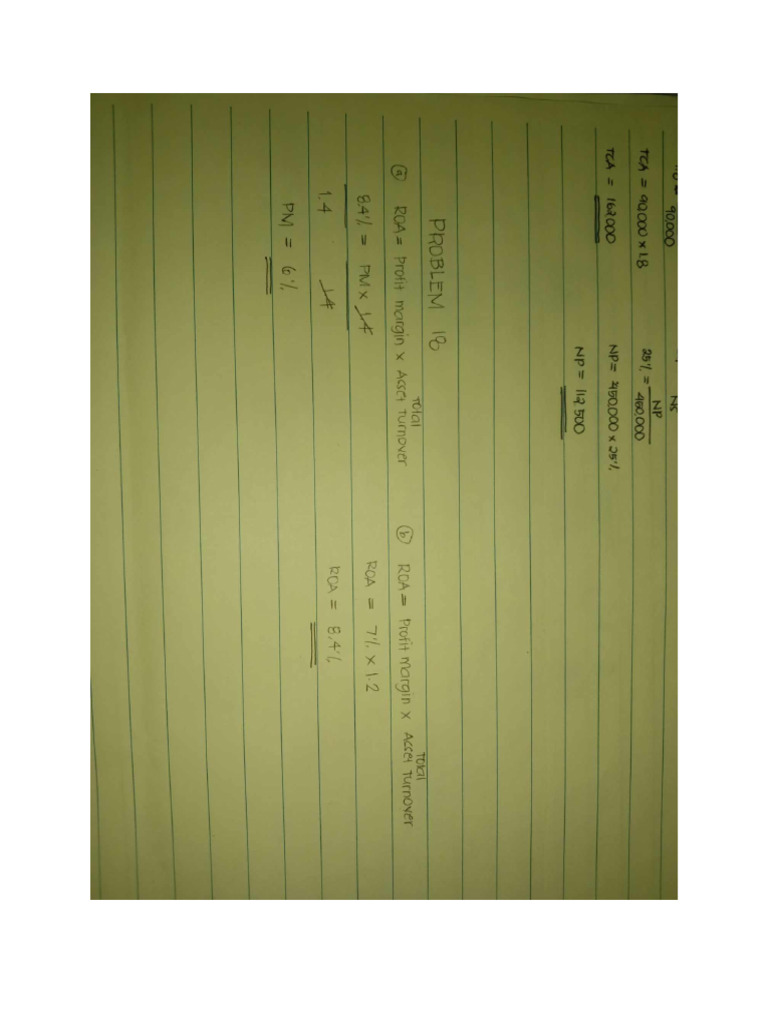 90,000
NS
TCA = 90,000 x 1.8
25% = NP
450,000
TCA = 162,000
NP = 450,000 x 25%
NP = 112,500
PROBLEM 18
(a) ROA = Profit margin x Total Asset Turnover
8.4% = PM x 1.4
1.4 1.4
PM = 6%
(b) ROA = Profit margin x Total Asset Turnover
ROA = 7% x 1.2
ROA = 8.4%